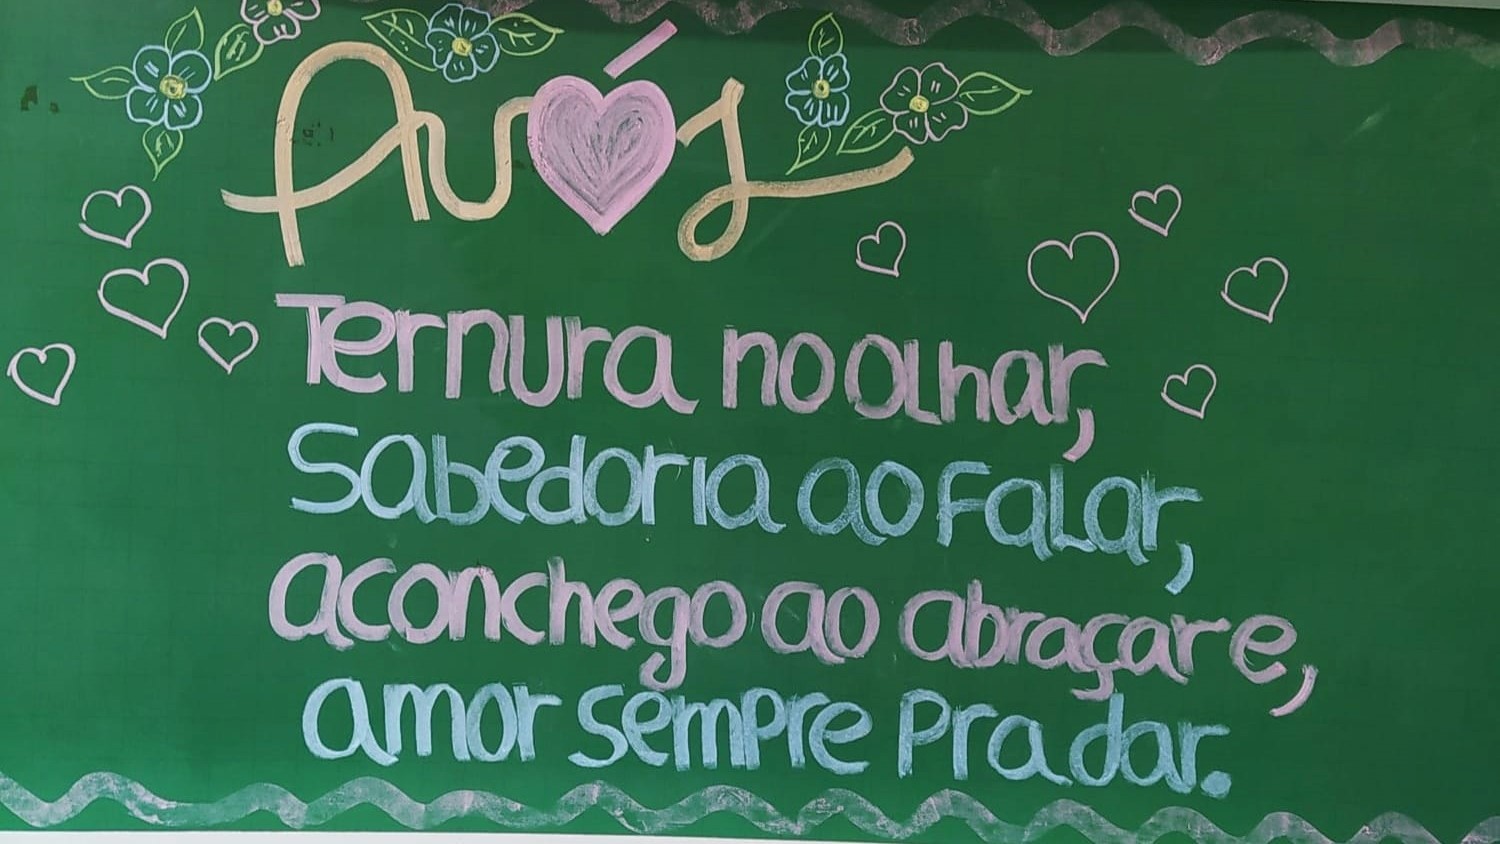 Avós
Ternura no olhar,
Sabedoria ao falar,
aconchego ao abraçar e,
amor sempre pra dar.